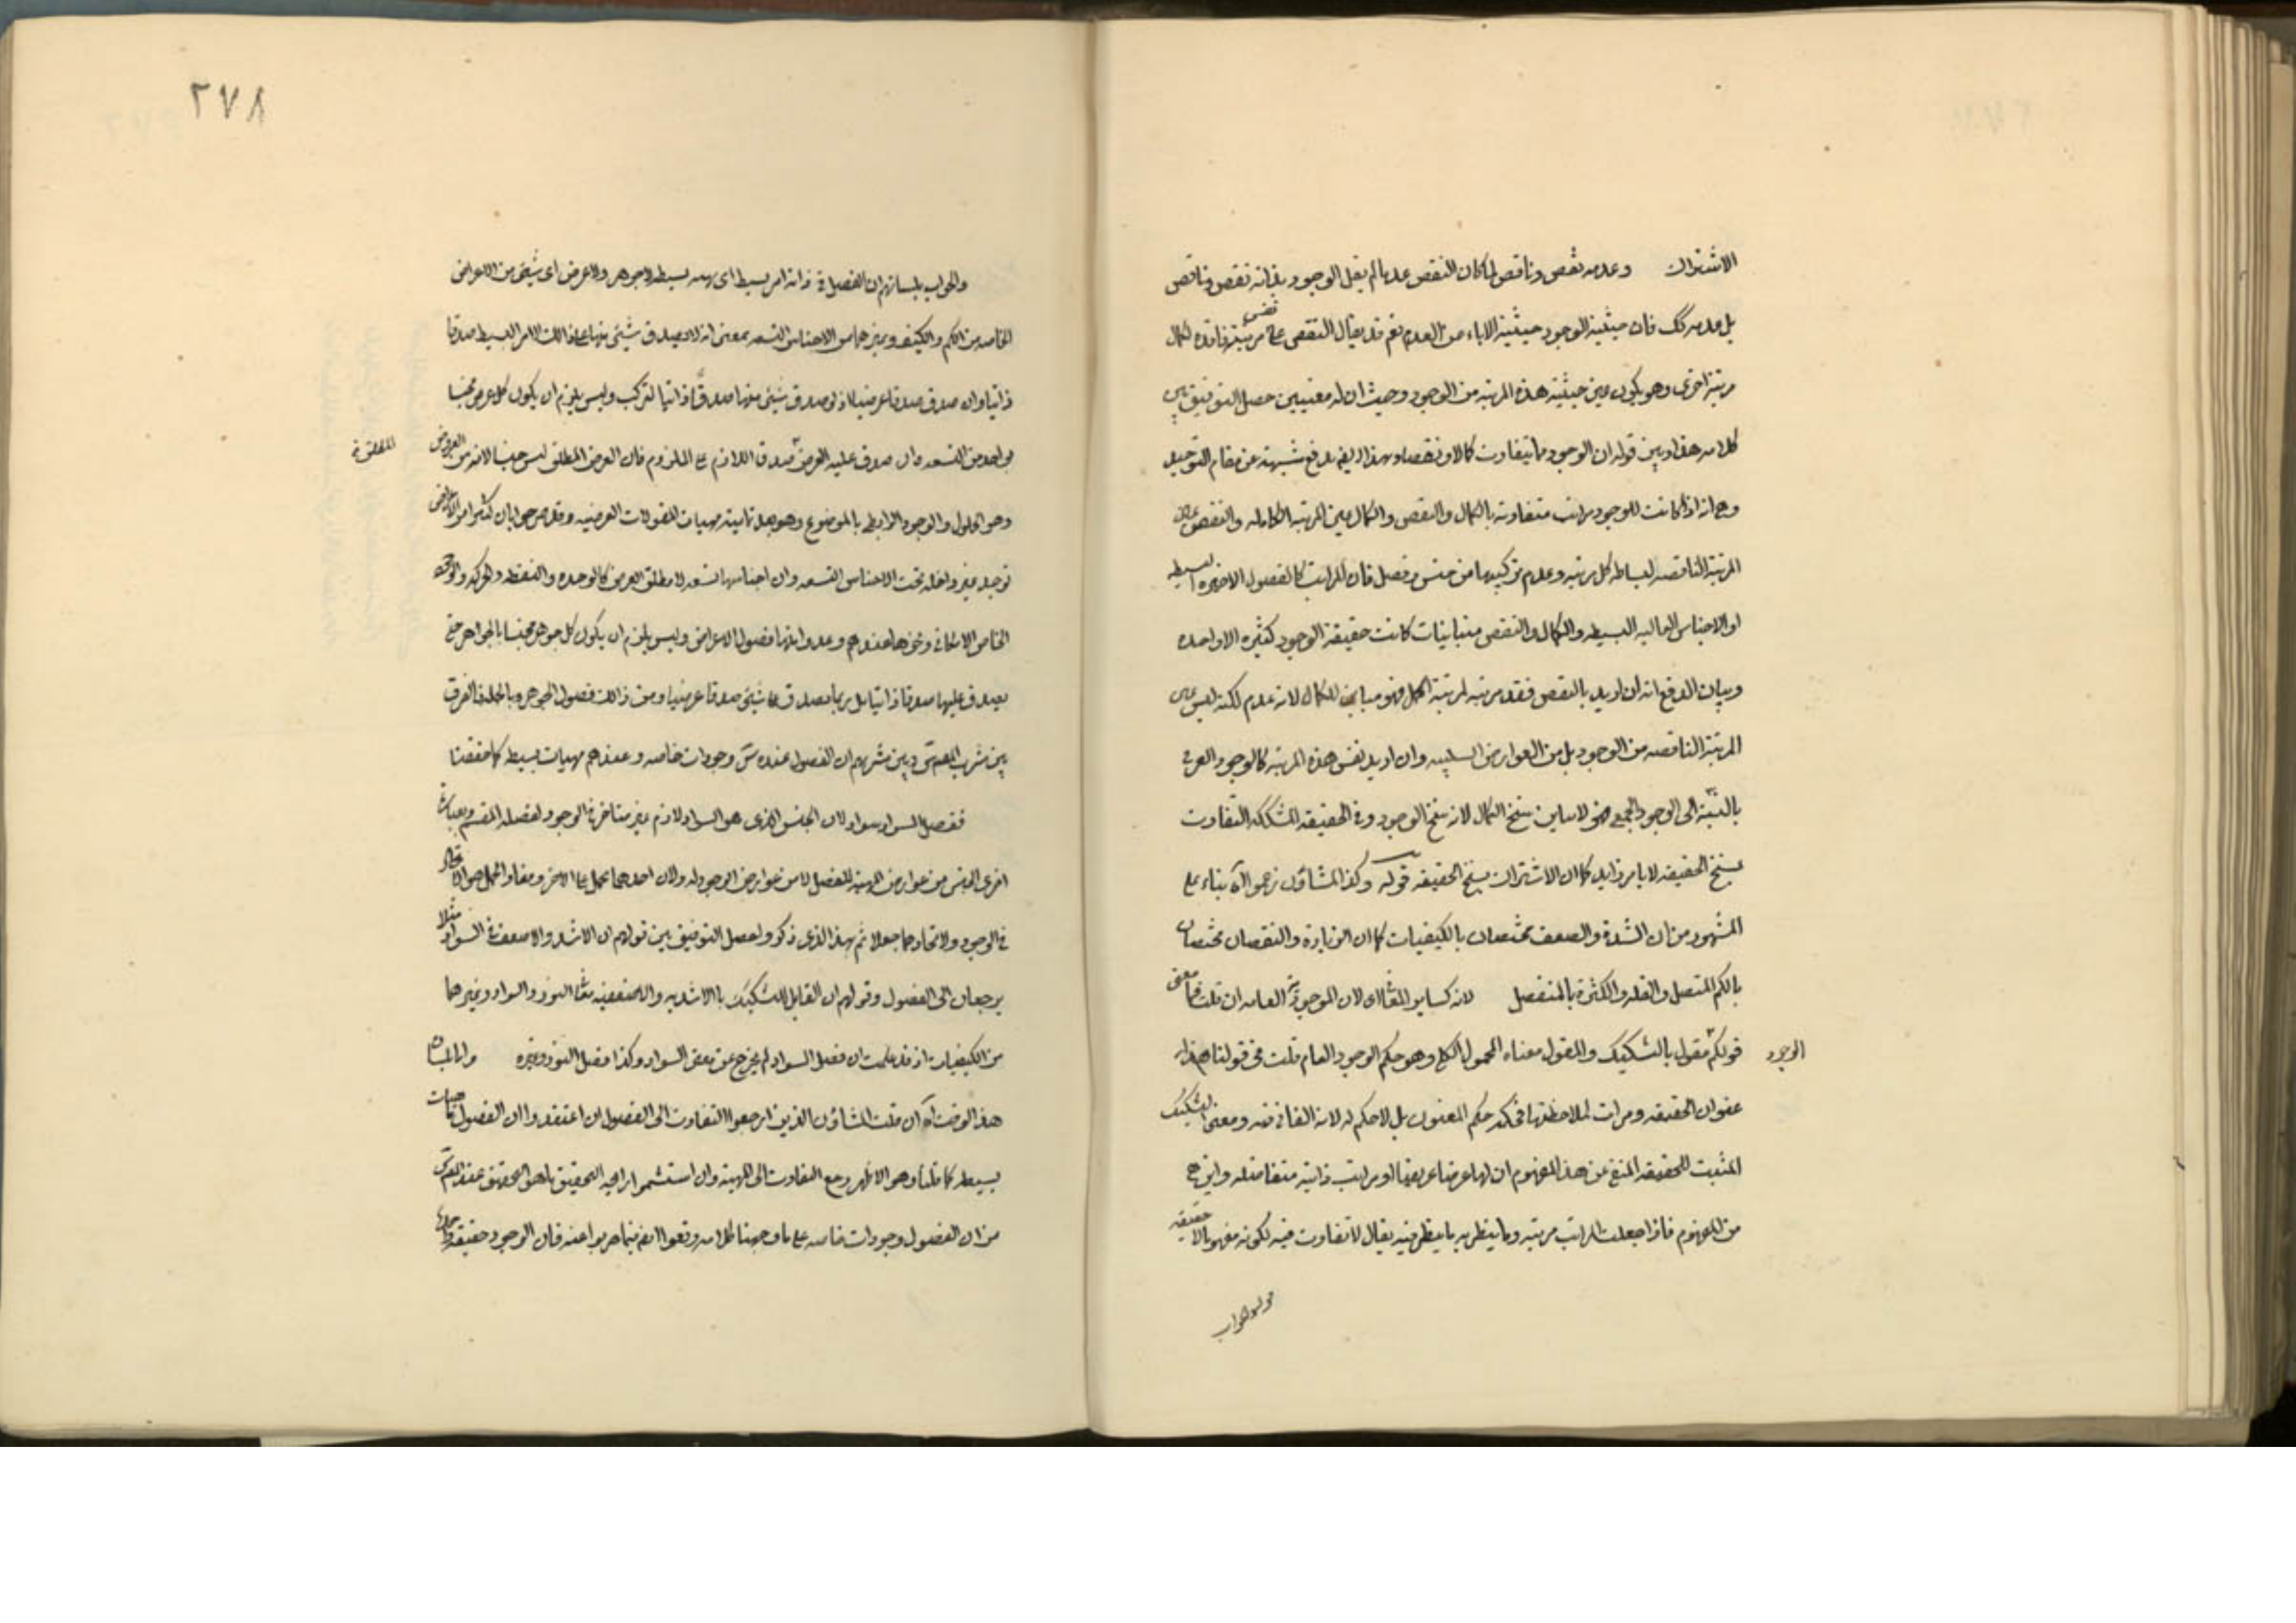 الاشتراك وعدمه نقص وناقص لما كان النقص عدما لم يقل الوجود بذاته نقص وناقص
بل عدمه كك فان حيثية الوجود حيثية الاباء من العدم نعم قد يقال النقص على نفس مرتبة فاقدة لكمال
مرتبة اخرى وهو يكون عين حيثية هذه المرتبة من الوجود وحيث ان له معنيين حصل التوفيق بين
كلامه هذا وبين قوله ان الوجود مما يتفاوت كمالا ونقصا وبهذا ايضا يدفع شبهته عن مقام التوحيد
وهى انه اذا كانت للوجود مراتب متفاوتة بالكمال والنقص والكمال عين المرتبة الكاملة والنقص عين
المرتبة الناقصه لبساطة كل مرتبه وعدم تركيبها من جنس وفصل فان المراتب كالفصول الاخيره البسيطه
او الاجناس العاليه البسيطه والكمال والنقص متباينات كانت حقيقة الوجود كثيره لا واحده
وبيان الدفع انه ان اريد بالنقص فقد مرتبه لمرتبة اكمل فهو مباين للكمال لانه عدم لكنه ليس عين
المرتبة الناقصه من الوجود بل من العوارض السلبيه وان اريد نفس هذه المرتبه كالوجود العرضى
بالنسبة الى الوجود الجمعى فهو لا يباين سنخ الكمال لانه سنخ الوجود وفى الحقيقه المشككه التفاوت
بسنخ الحقيقه لا بامر زايد كما ان الاشتراك بسنخ الحقيقه قوله وكذا المشاؤن زعموا آه بناء على
المشهور من ان الشدة والضعف مختصان بالكيفيات كما ان الزيادة والنقصان مختصان
بالكم المتصل والقله والكثرة بالمنفصل لانه كساير المقالات لان الموجودية العامه ان قلت فما معنى
قولكم الوجود مقول بالتشكيك والمقول معناه المحمول الكلى وهو حكم الوجود العام قلت فى قولنا هذا
عنوان الحقيقه ومرات لملاحظتها فحكمه حكم المعنون بل لا حكم له لانه الفانى فيه ومعنى التشكيك
المثبت للحقيقه المنفى عن هذا المفهوم ان لها عرضا عريضا او مراتب ذاتيه متفاضله واين هى
من المفهوم فاذا جعلت المراتب مرتبه وما ينظر به ما ينظر فيه يقال لا تفاوت فيه لكونه مفهوما لا حقيقه
والجواب
٢٧٨
والجواب بلسانهم ان الفصل فى ذاته امر بسيط اى مهيه بسيطه لا جوهر ولا عرض اى شيئ من الاعراض
الخاصه من الكم والكيف وغيرهما من الاجناس التسعه بمعنى انه لا يصدق شيئى منها على ذالك الامر البسيط صدقا
ذاتيا وان صدق صدقا عرضيا اذ لو صدق شيئى منها صدقا ذاتيا لتركب وليس يلزم ان يكون كل عرض مجنسا
بواحد من التسعه وان صدق عليه العرض صدق اللازم على الملزوم فان العرض المطلق ليس جنسا لانه من العروض
وهو الحلول والوجود الرابطى بالموضوع وهو بعد تمامية مهيات المقولات العرضيه وقد صرحوا بان كثيرا من الاعراض
توجد غير داخله تحت الاجناس التسعه وان اجناسها تسعه لا مطلق العرض كالوحده والنقطه والحركه والوجود
الخاص الامكانى ونحوها عندهم وعدوا منها فصول الاعراض وليس يلزم ان يكون كل جوهر مجنسا بالجواهر حتى
يصدق عليها صدقا ذاتيا بل ربما يصدق على شيئى صدقا عرضيا ومن ذالك فصول الجوهر وبالجمله الفرق
بين مشرب المص وبين مشربهم ان الفصول عنده وجودات خاصه وعندهم مهيات بسيطه كما حققنا
ففصل السواد سواد لان الجنس الذى هو السواد لازم غير متاخر فى الوجود لفصله المقسم وبعبارة
اخرى الجنس من عوارض المهيه للفصل لا من عوارض الوجود له ولان احدهما يحمل على الاخر ومفاد الحمل هو الاتحاد
فى الوجود ولاتحادهما جعلا ثم بهذا الذى ذكر وا يحصل التوفيق بين قولهم ان الاشد والاضعف فى السواد مثلا
يرجعان الى الفصول وقولهم ان القابل للتشكيك بالاشديه والاضعفيه مثل النور والسواد وغيرهما
من الكيفيات اذ قد علمت ان فصل السواد لم يخرج عن معنى السواد وكذا فصل النور وغيره
هذا الوضت آه ان قلت المشاؤن الذين ارجعوا التفاوت الى الفصول ان اعتقدوا ان الفصول مهيات
بسيطه كما قلنا وهو الاظهر رجع التفاوت الى المهية وان استشموا رايحة التحقيق
من ان الفصول وجودات خاصه على ما وجهنا كلامه وقعوا ايضا فيما هربوا عنه فان الوجود حقيقة